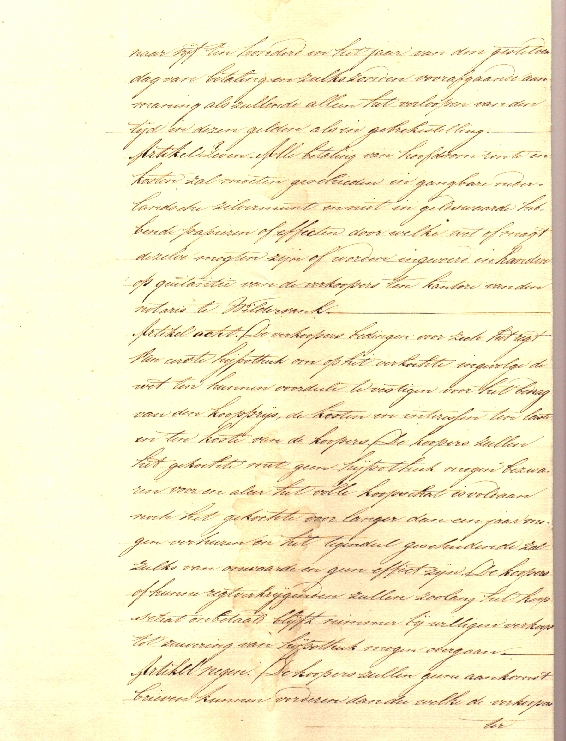 naar vijf ten honderd in het jaar van den gestelden
dag van betaling en zulks zonder voorafgaande aan
maning als zullende alleen het verloopen van den
tijd in dezen gelden als in gebrekestelling.
Artikel Zeven. Alle betaling van hoofdsom rente en
kosten zal moeten geschieden in gangbare neder-
landsche zilvermunt en niet in geldswaarde heb-
bende papieren of effecten door welke wet of magt
dezelve mogten zijn of worden ingevoerd in handen
op quitantie van de verkoopers ten kantore van den
notaris te Wildervank.
Artikel acht. De verkoopers bedingen voor zich het regt
van eerste hypotheek om op het verkochte ingevolge de
wet ten hunnen voordeele te vestigen voor het beloop
van den koopprijs, de kosten en interessen ten laste
en ten koste van de koopers. De koopers zullen
het gekochte met geen hypotheek mogen bezwa-
ren voor en aleer het volle koopschat is voldaan
noch het gekochte voor langer dan een jaar mo-
gen verhuren en het tegendeel geschiedende zal
zulks van onwaarde en geen effect zijn. De koopers
of hunne regtverkrijgenden zullen zoolang het koop
schat onbetaald blijft nimmer bij willigen verkoop
tot zuivering van hypotheek mogen overgaan.
Artikel negen. De koopers zullen geene aankomst
brieven kunnen vorderen dan die welke de verkoopers
ter